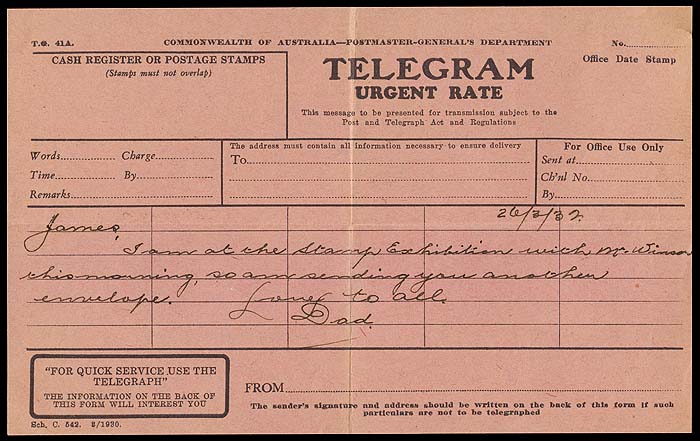 T.G. 41A.
COMMONWEALTH OF AUSTRALIA—POSTMASTER-GENERAL'S DEPARTMENT
No.
CASH REGISTER OR POSTAGE STAMPS
(Stamps must not overlap)
TELEGRAM
URGENT RATE
This message to be presented for transmission subject to the
Post and Telegraph Act and Regulations
Office Date Stamp
Words
Charge
Time
By
Remarks
The address must contain all information necessary to ensure delivery
To
For Office Use Only
Sent at
Ch'nl No.
By
26/3/32.
James,
I am at the Stamp Exhibition with Mr. Winsor
this morning, so am sending you another
envelope. Love to all.
Dad.
"FOR QUICK SERVICE USE THE
TELEGRAPH"
THE INFORMATION ON THE BACK OF
THIS FORM WILL INTEREST YOU
FROM
The sender's signature and address should be written on the back of this form if such
particulars are not to be telegraphed
Sch. C. 542. 2/1930.